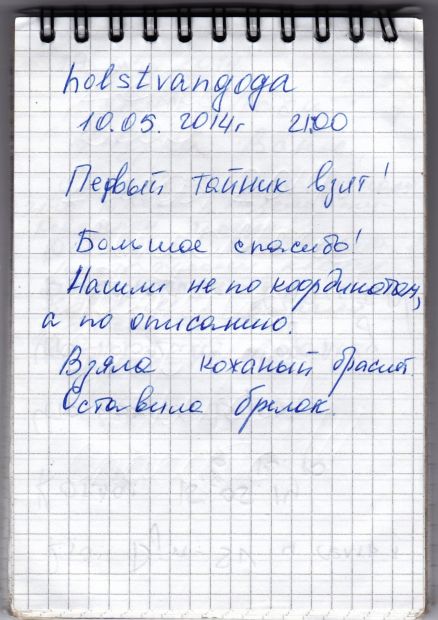 holstvangoga
10.05. 2014г 21:00
Первый тайник взят!
Большое спасибо!
Нашли не по координатам,
а по описанию.
Взяла кожаный браслет.
Оставила брелок.